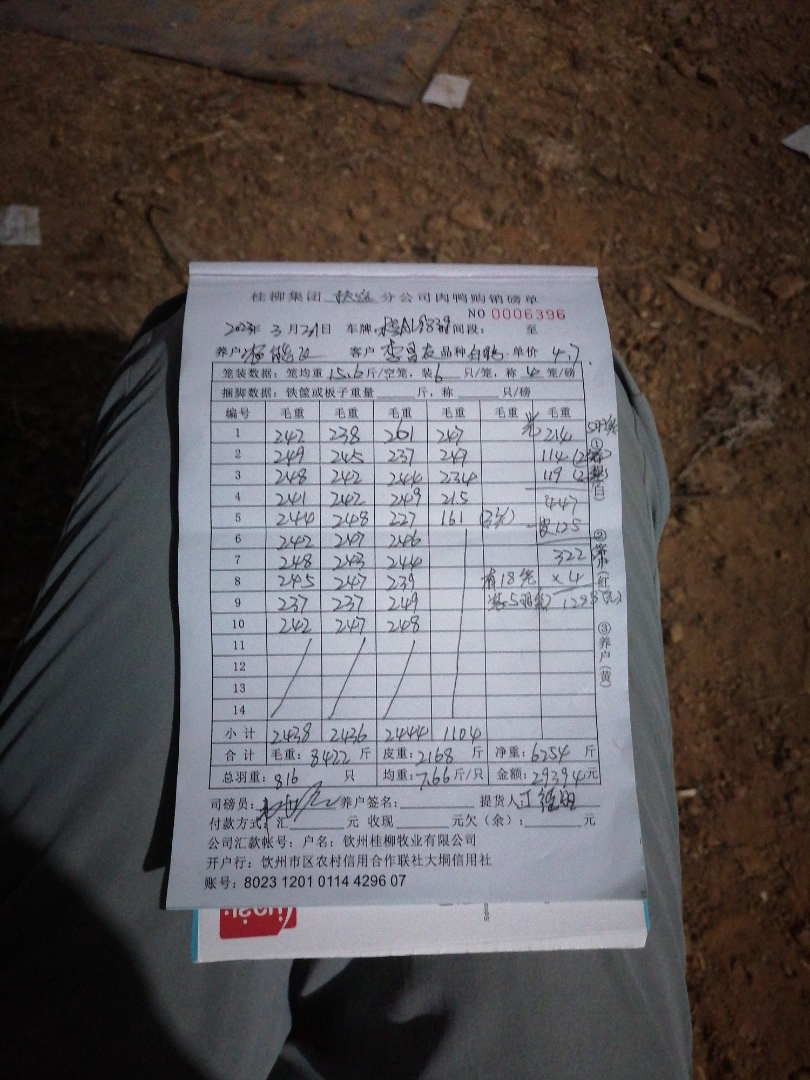 桂柳集团 钦州 分公司肉鸭购销磅单
NO 0006396
2023年 3 月 21日 车牌: 时间段: 至
养户: 客户 品种 白鸭 单价 4.7
笼装数据: 笼均重 15.6 斤/空笼, 装 6 只/笼, 称 4 笼/磅
捆脚数据: 铁筐或板子重量 斤, 称 只/磅
编号 毛重 毛重 毛重 毛重 毛重 毛重
1 242 238 261 247 214
2 249 245 237 249 114
3 248 242 244 234 119
4 241 242 249 215 447
5 244 248 227 161 皮125
6 242 247 246 322
7 248 243 244
8 245 247 239 有18笼 ×4
9 237 237 249
10 242 247 248
11
12
13
14
小计 2438 2436 2444 1104
合计 毛重: 8422 斤 皮重: 2168 斤 净重: 6254 斤
总羽重: 816 只 均重: 7.66 斤/只 金额: 29394 元
①
白)
②
(红)
③养户(黄)
司磅员: 养户签名: 提货人:
付款方式: 汇 元 收现 元欠(余): 元
公司汇款帐号: 户名: 钦州桂柳牧业有限公司
开户行: 钦州市区农村信用合作联社大垌信用社
账号: 8023 1201 0114 4296 07